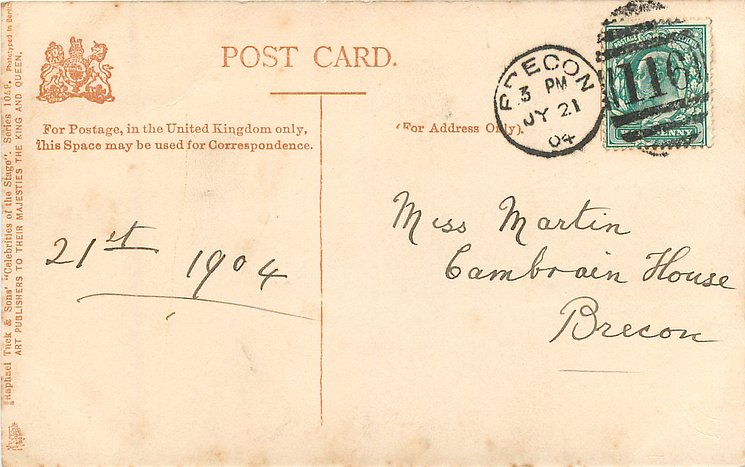 POST CARD.
For Postage, in the United Kingdom only,
This Space may be used for Correspondence.
(For Address Only).
BRECON
3 PM
JY 21
04
116
HALFPENNY
21st 1904
Miss Martin
Cambrain House
Brecon
Raphael Tuck & Sons' "Celebrities of the Stage". Series 
ART PUBLISHERS TO THEIR MAJESTIES THE KING AND QUEEN.